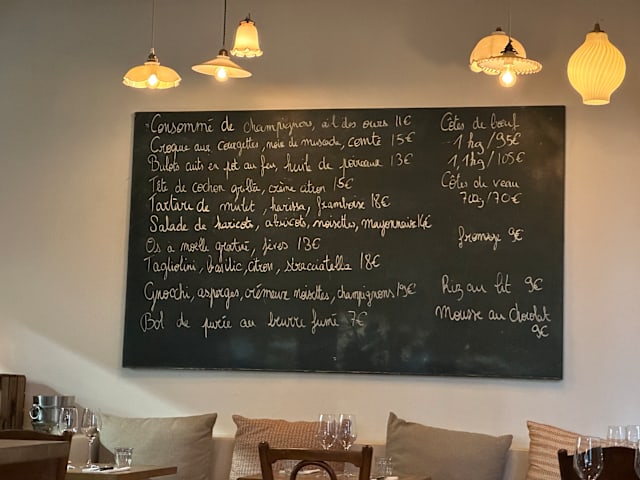 Consommé de champignons, ail des ours 11€
Croque aux courgettes, noix de muscade, comté 15€
Bulots cuits en pot au feu, huile de poireaux 13€
Tête de cochon grillée, crème citron 15€
Tartare de mulet, harissa, framboise 18€
Salade de haricots, abricots, noisettes, mayonnaise 14€
Os à moelle gratiné, fèves 13€
Tagliolini, basilic, citron, stracciatella 18€
Gnocchi, asperges, crémeux noisettes, champignons 19€
Bol de purée au beurre fumé 7€
Côtes de bœuf
1 kg / 95€
1,1kg / 105€
Côtes de veau
700g / 70€
fromage 9€
Riz au lait 9€
Mousse au chocolat
9€